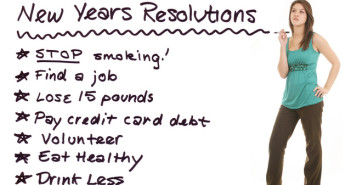 New Years Resolutions
★ STOP smoking!
★ Find a job
★ Lose 15 pounds
★ Pay credit card debt
★ Volunteer
★ Eat Healthy
★ Drink Less